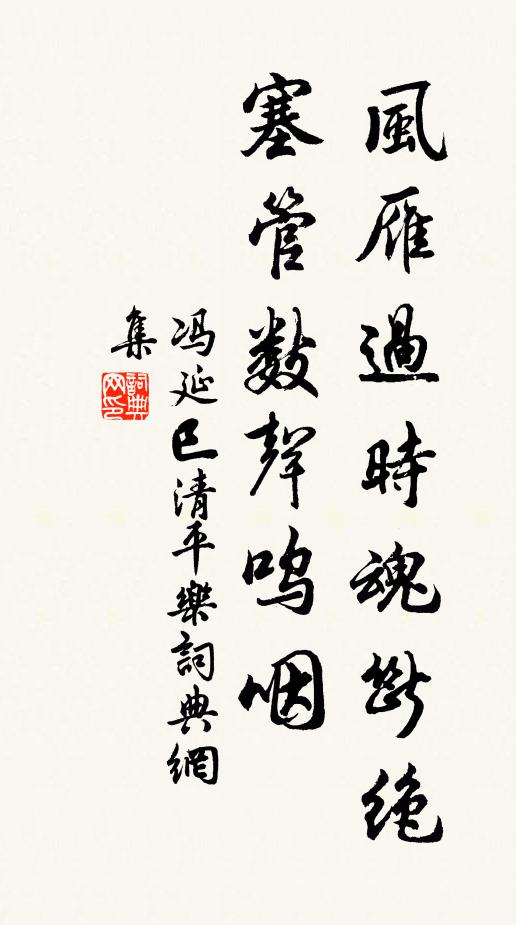 風雁過時魂斷絶
塞管數聲嗚咽
冯延巳清平樂詞典網
集
詞典
网印